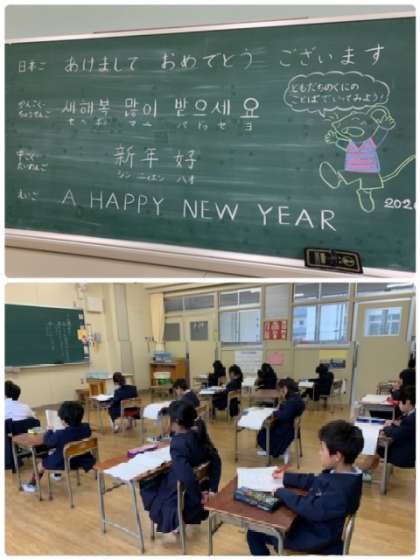 日本ご あけまして おめでとう ございます
かんこく・
ちょうせんご
새해복 많이 받으세요
セヘボ マニ パドゥセヨ
新年好
シン ニィエン ハオ
えいご A HAPPY NEW YEAR
ともだちのくにの
ことばでいってみよう!
202